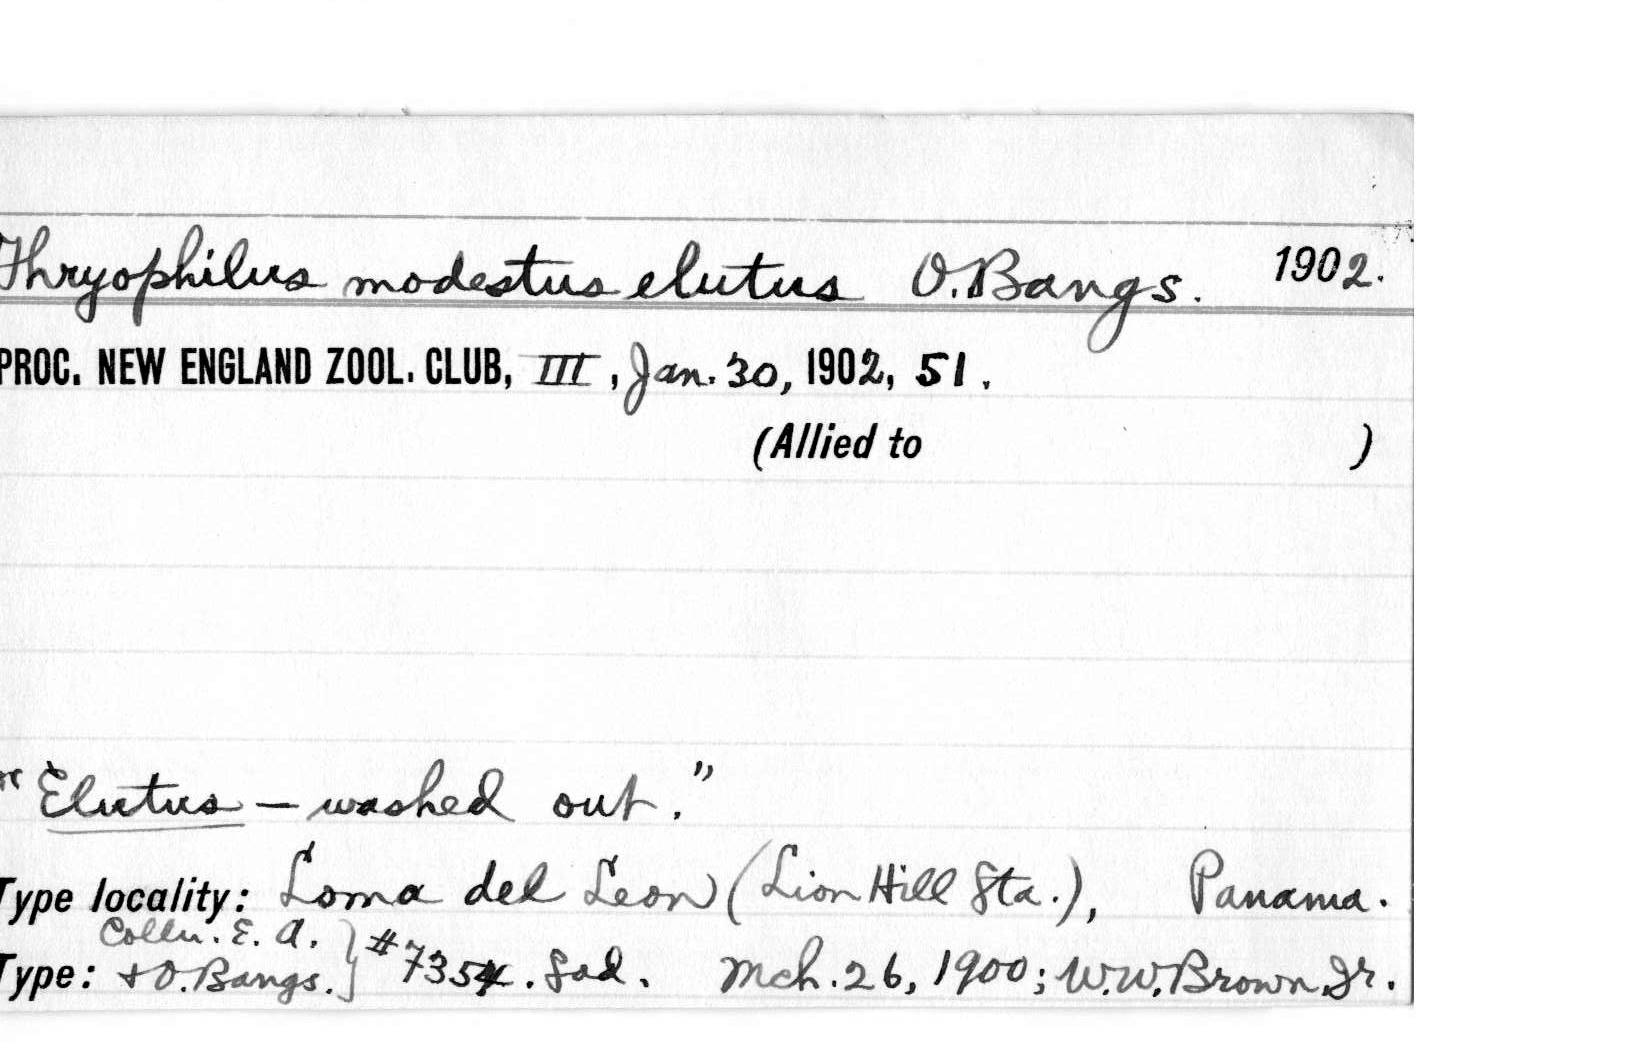 Thryophilus modestus elutus O. Bangs. 1902.
PROC. NEW ENGLAND ZOOL. CLUB, III, Jan. 30, 1902, 51.
(Allied to )
"Elutus — washed out."
Type locality: Loma del Leon (Lion Hill Sta.), Panama.
Colln. E. A.
Type: + O. Bangs. } #7354. ad. Mch. 26, 1900; W.W. Brown, Jr.